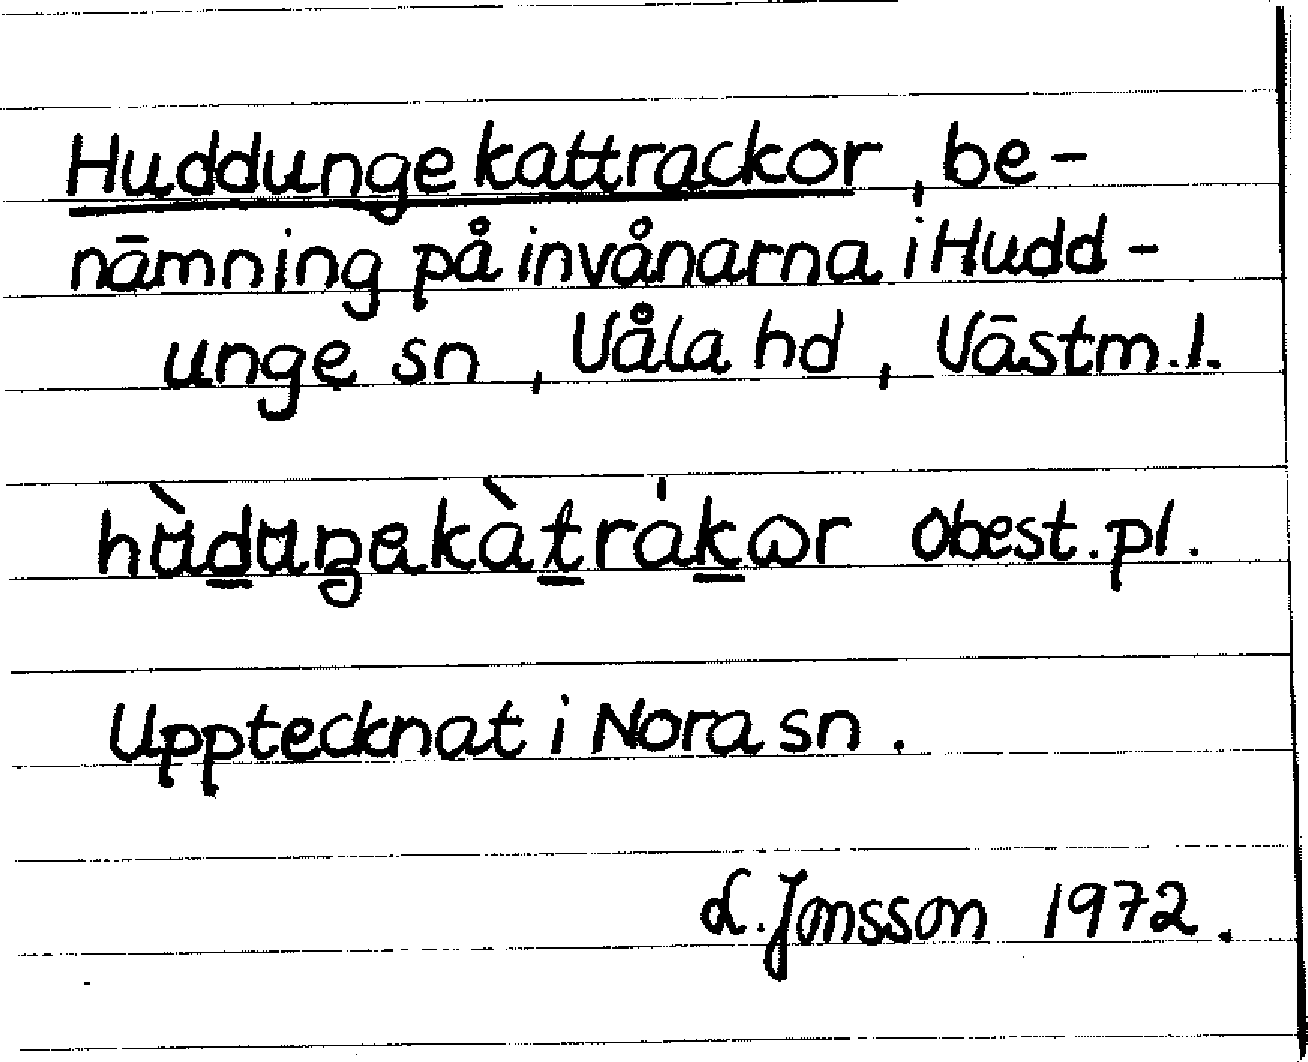 Huddungekattrackor, be-
nämning på invånarna i Hudd-
unge sn, Våla hd, Västm.l.
hùduŋekàtrákor obest.pl.
Upptecknat i Nora sn.
L. Jonsson 1972.